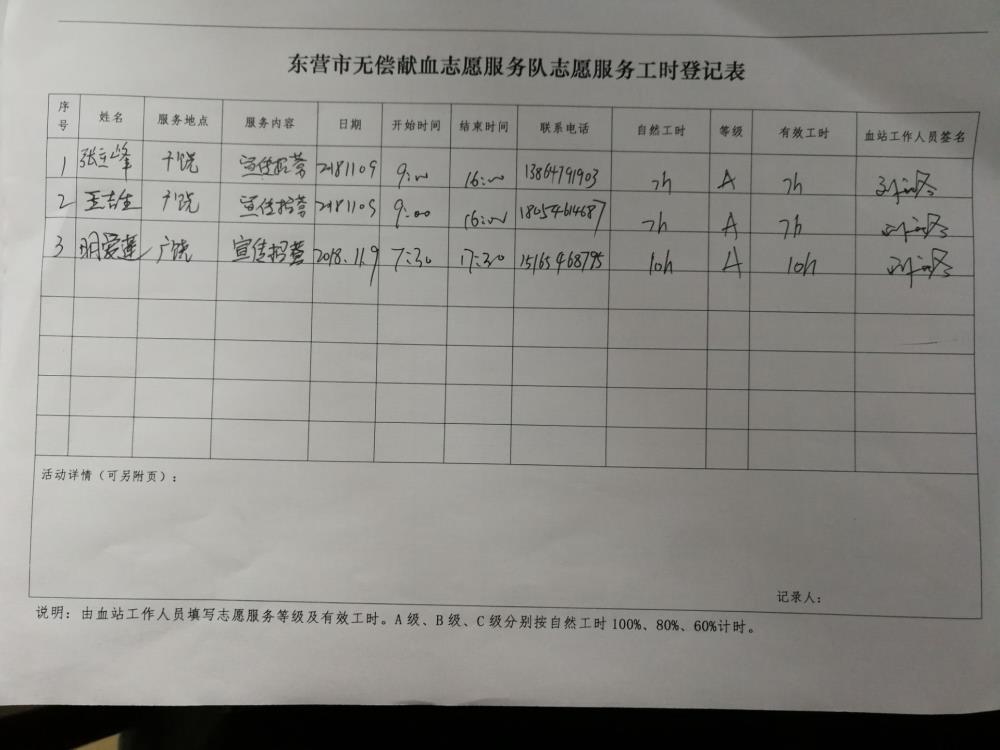 东营市无偿献血志愿服务队志愿服务工时登记表
序号 姓名 服务地点 服务内容 日期 开始时间 结束时间 联系电话 自然工时 等级 有效工时 血站工作人员签名
1 张立峰 广饶 宣传招募 20181109 9:00 16:00 13864791903 7h A 7h
2 广饶 宣传招募 20181109 9:00 16:00 18454614687 7h A 7h
3 明爱莲 广饶 宣传招募 2018.11.9 7:30 17:30 15165468795 10h A 10h
活动详情（可另附页）：
记录人：
说明：由血站工作人员填写志愿服务等级及有效工时。A级、B级、C级分别按自然工时100%、80%、60%计时。